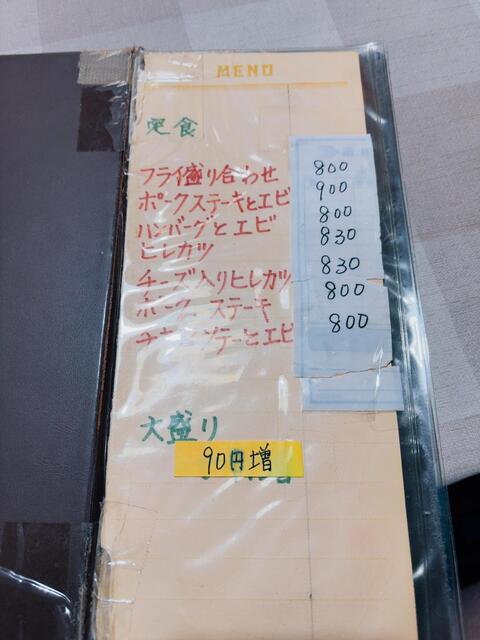 MENU
定食
フライ盛り合わせ 800
ポークステーキとエビ 900
ハンバーグとエビ 800
ヒレカツ 830
チーズ入りヒレカツ 830
ポークステーキ 800
ソテーとエビ 800
大盛り
90円増